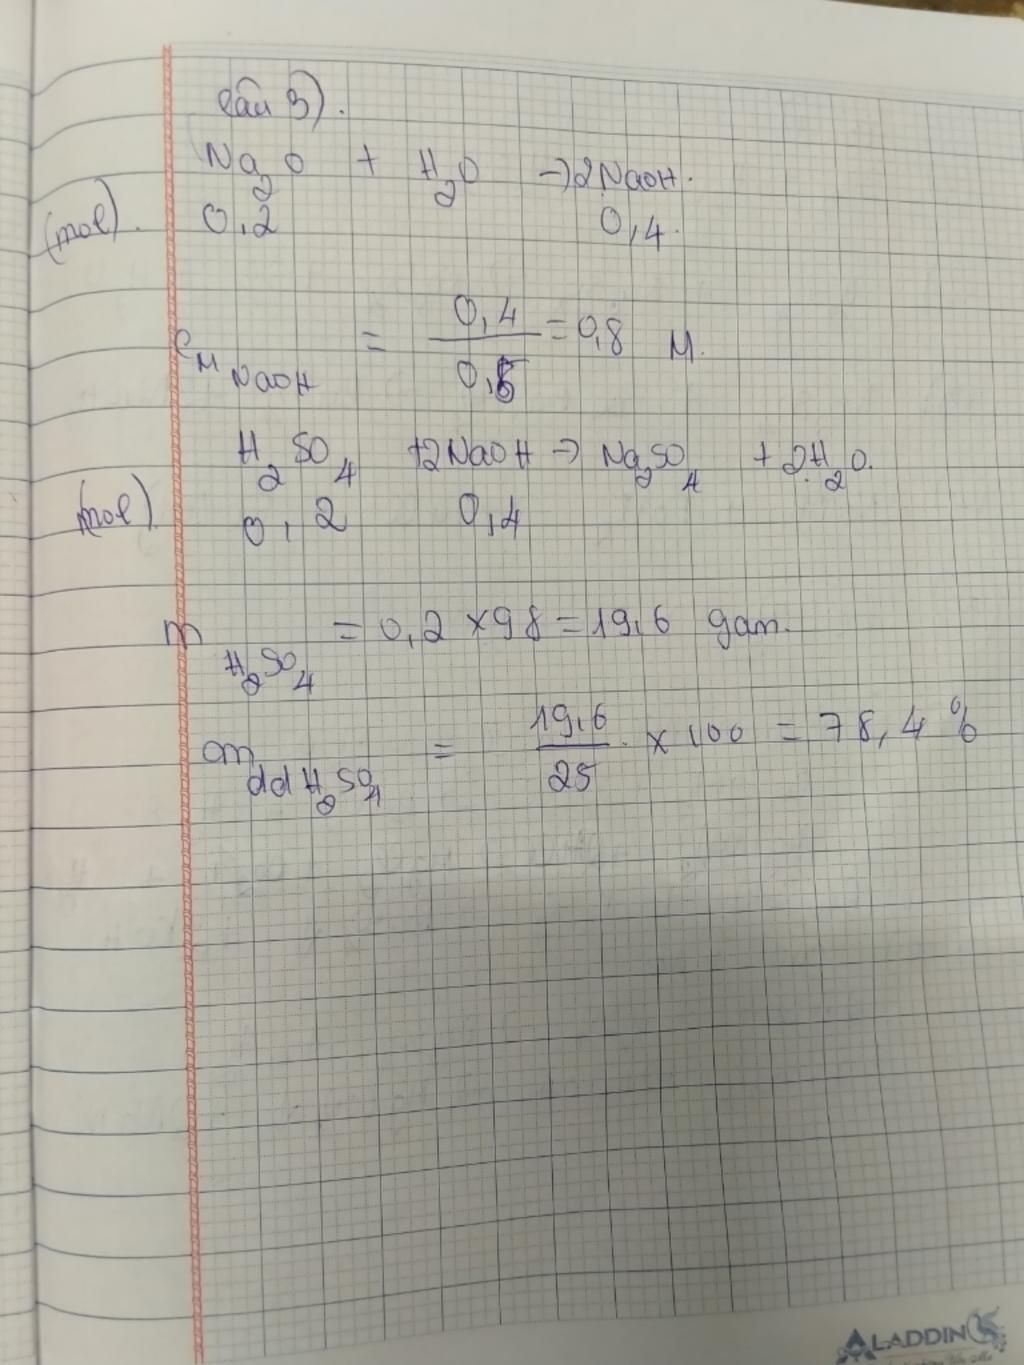 Câu 3).
Na2O + H2O → 2NaOH.
(mol). 0,2 0,4.
CM NaOH = 0,4 / 0,5 = 0,8 M.
H2SO4 + 2NaOH → Na2SO4 + 2H2O.
(mol). 0,2 0,4
m H2SO4 = 0,2 × 98 = 19,6 gam.
m dd H2SO4 = 19,6 / 25 × 100 = 78,4 %
ALADDIN